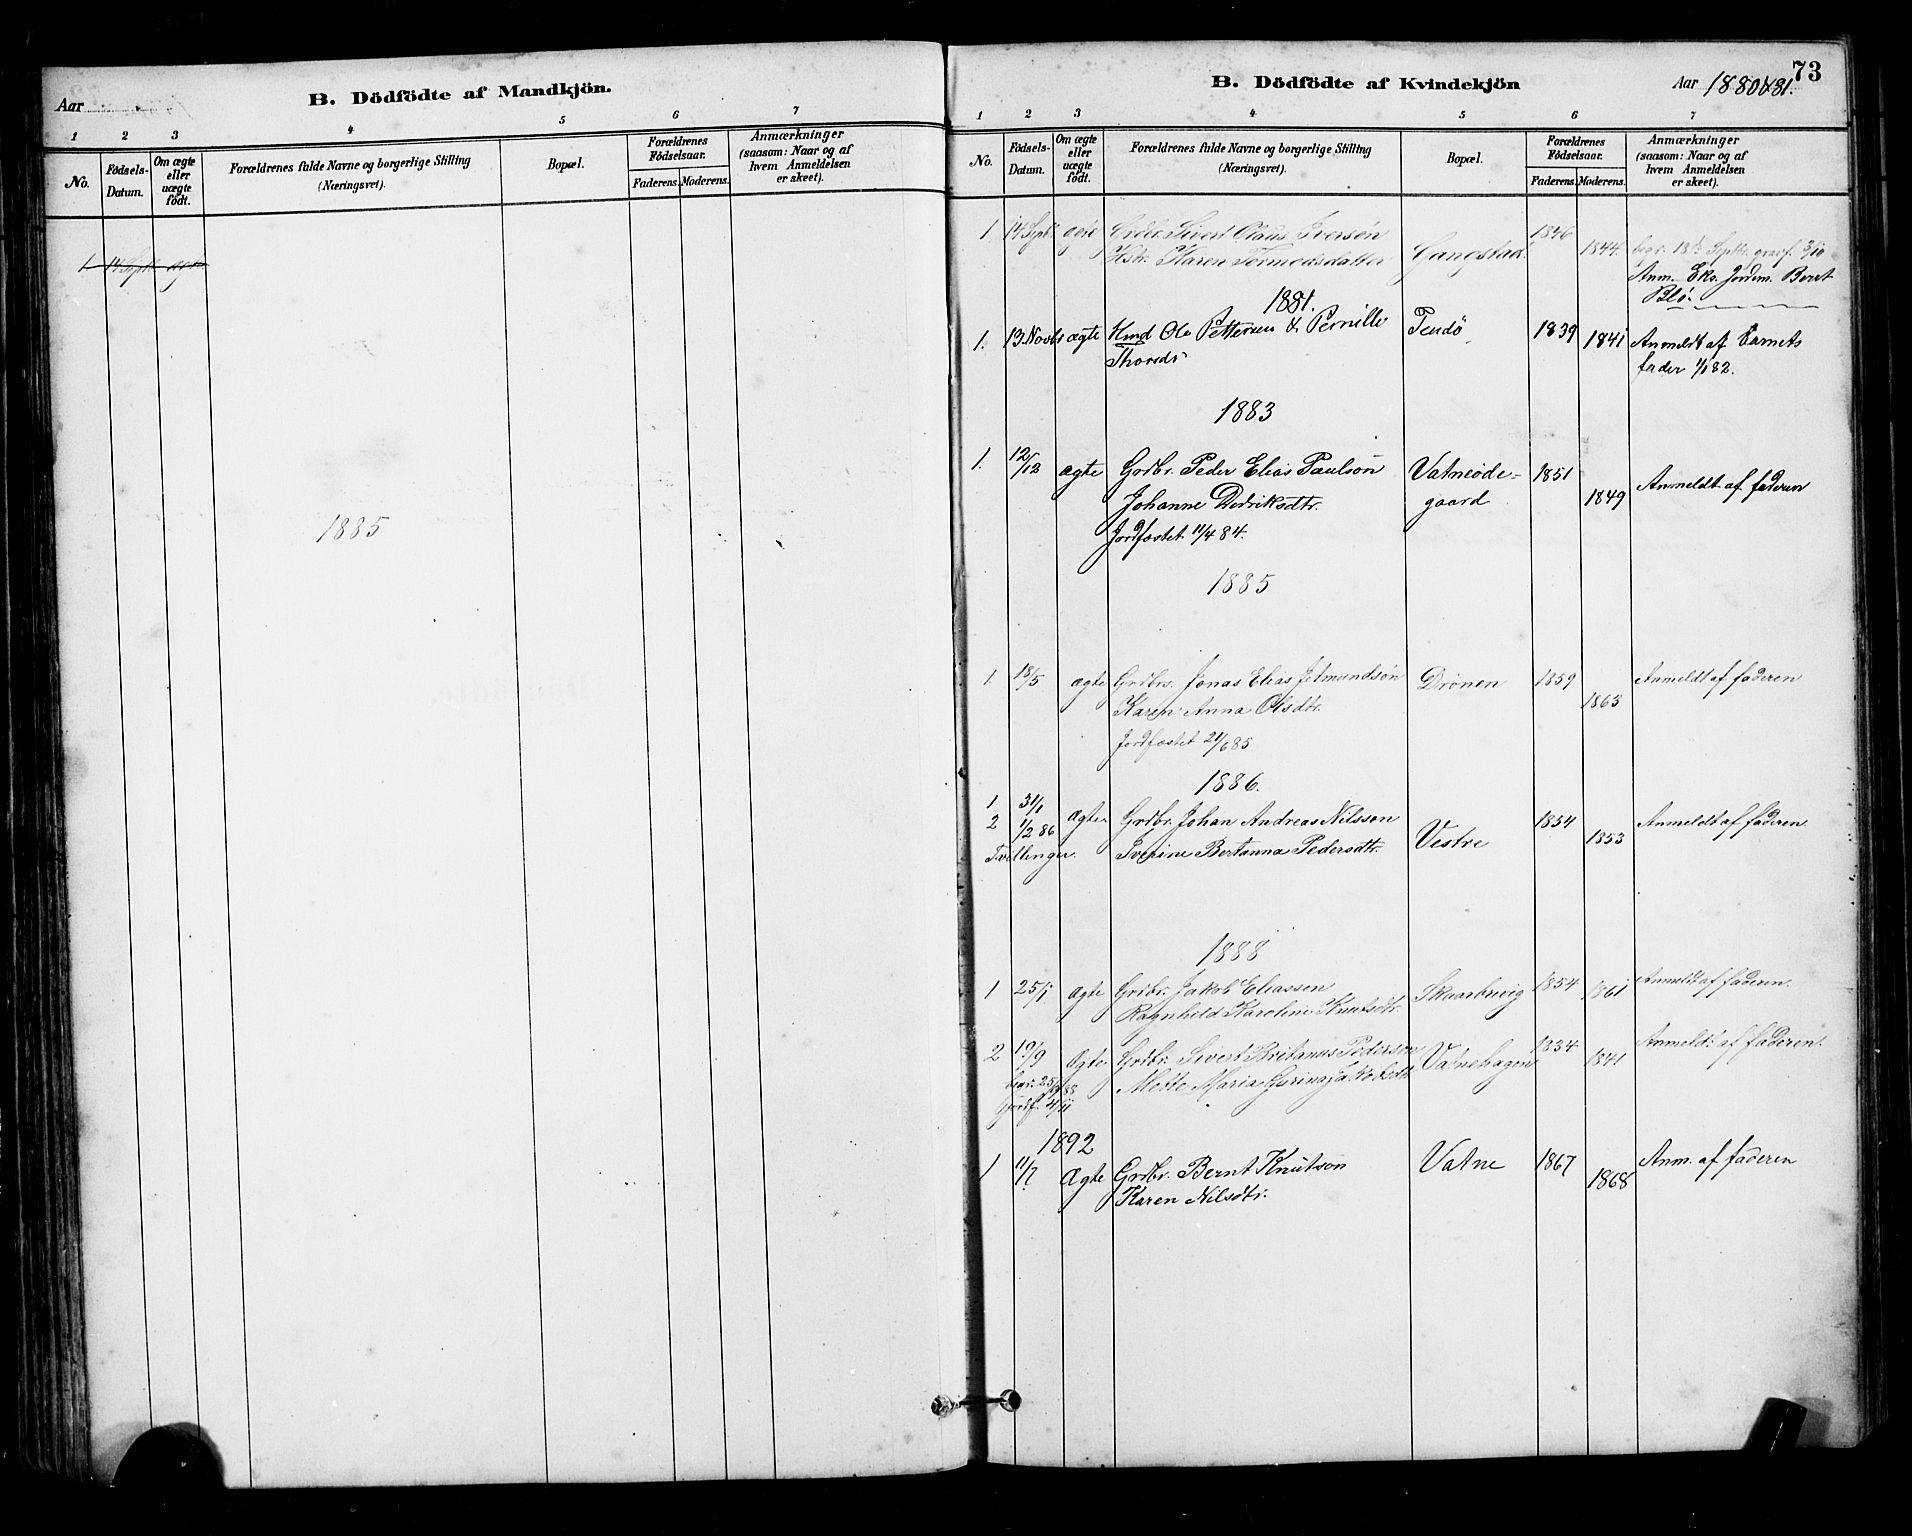 Aar
B. Dödfödte af Mandkjön.
1 2 3 4 5 6 7
No.
Födsels-Datum.
Om ægte eller uægte födt.
Forældrenes fulde Navne og borgerlige Stilling (Næringsvei).
Bopæl.
Forældrenes Födselsaar.
Faderens. Moderens.
Anmærkninger (saasom: Naar og af hvem Anmeldelsen er skeet).
1. 14 Septb. ægte
1885
73
B. Dödfödte af Kvindekjön
Aar 1880 & 81.
1 2 3 4 5 6 7
No.
Födsels-Datum.
Om ægte eller uægte födt.
Forældrenes fulde Navne og borgerlige Stilling (Næringsvei).
Bopæl.
Forældrenes Födselsaar.
Faderens. Moderens.
Anmærkninger (saasom: Naar og af hvem Anmeldelsen er skeet).
1. 14 Septb. ægte Sivert Claus Iversøn 1846
Hstr. Karen Tormodsdatter Gangstad 1844 begr. 18de Septbr. 3/10
Anm. Eks. Jordm. Berit
Blø.
1881.
1. 13 Novbr ægte Hmd Ole Pettersen & Pernille Tendö 1839 1841 Anmeldt af Barnets
Thorsdr fader 1/1 82.
1883
1. 12/12 ægte Grdbr. Peder Elias Paulsön Vatneøde- 1851 1849 Anmeldt af faderen
Johanne Didriksdtr. gaard
Jordfæstet 11/4 84.
1885
1. 18/5 ægte Grdbr. Jonas Elias Jetmundsön Drönen 1859 1863 Anmeldt af faderen
Karen Anna Olsdtr.
Jordfæstet 21/6 85
1886.
1 31/1
2 1/2 86 ægte Grdbr. Johan Andreas Nilsson Vestre 1854 1853 Anmeldt af faderen
Tvillinger. Iverine Bertanna Pedersdtr.
1888
1 25/1 ægte Grdbr. Jakob Eliassen Skaarbrevig 1854 1861 Anmeldt af faderen.
Ragnhild Karoline Knutsdtr.
2 19/9 ægte Grdbr. Sivert Britanus Pederson Vatnehagen 1834 1841 Anmeldt af faderen.
begr. 25/9 88 Mette Maria Gurine Jakobsdtr.
Jordf. 4/11
1892
1 11/7 ægte Grdbr. Bernt Knutson Vatne 1867 1868 Anm. af faderen
Karen Nilsdtr.